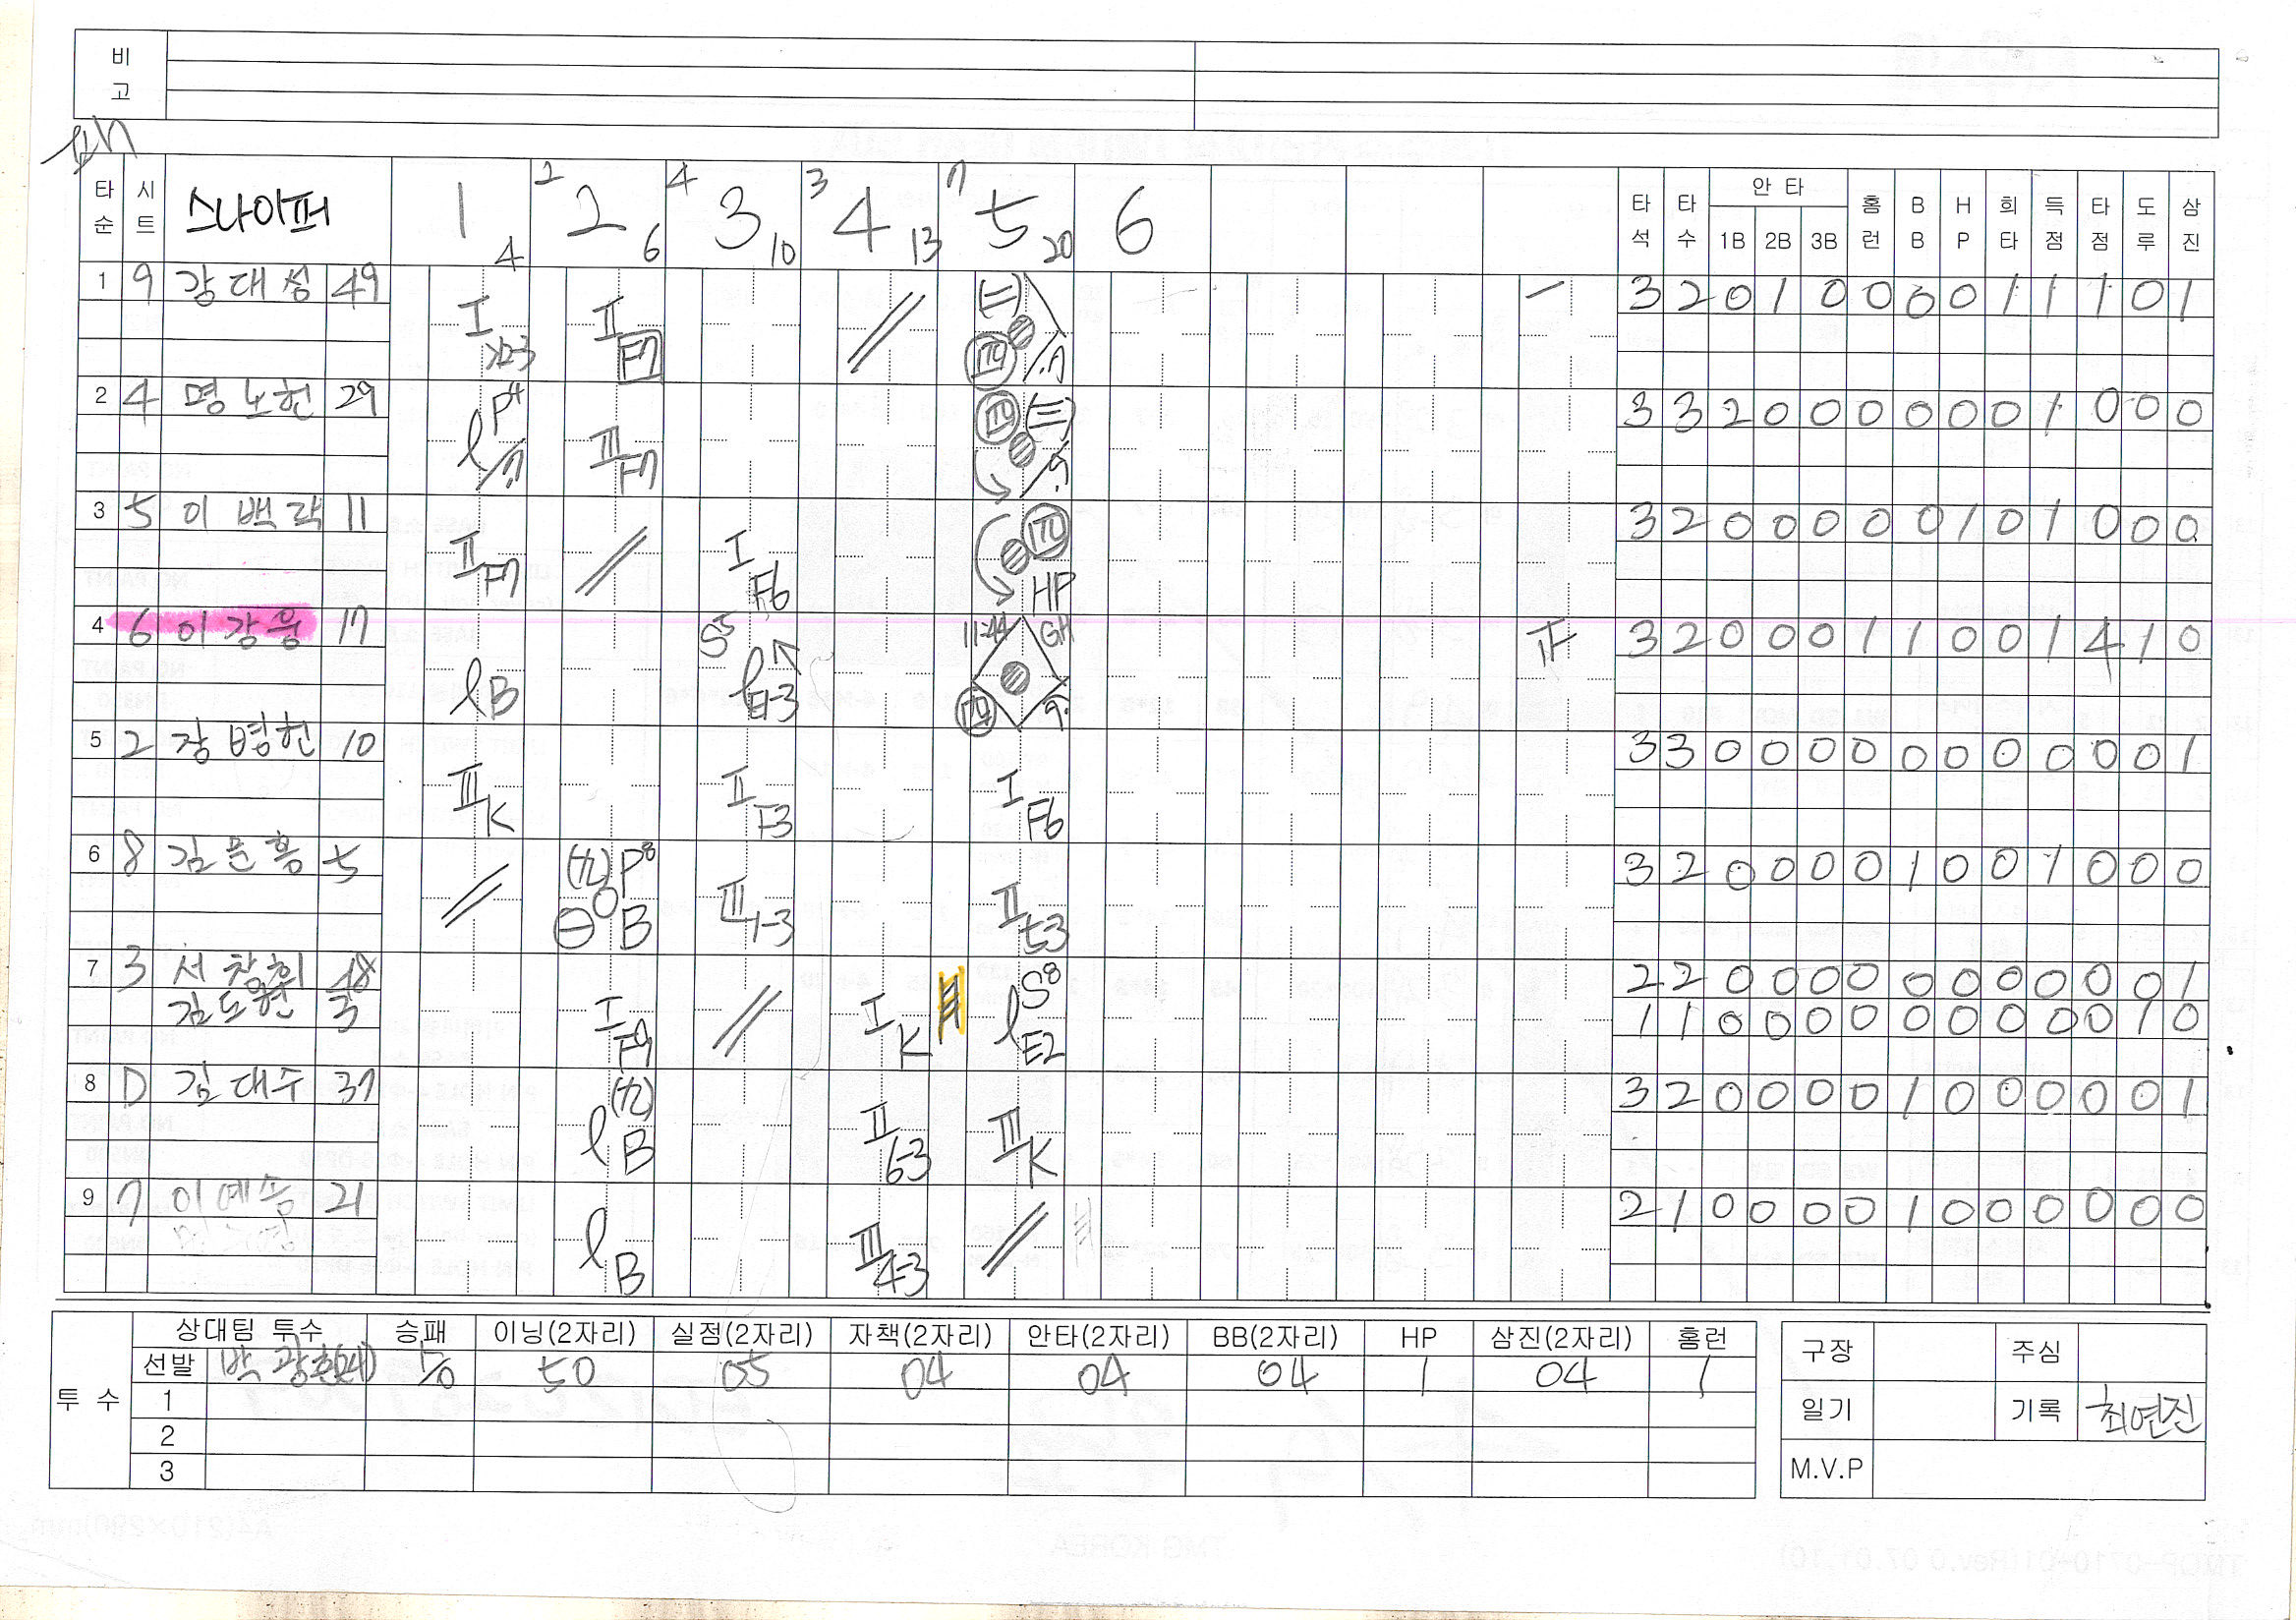 비
고
타순 시트 스나이퍼 1 4 2 2 6 4 3 10 3 4 13 7 5 20 6 타석 타수 안타 1B 2B 3B 홈런 BB HP 희타 득점 타점 도루 삼진
1 9 강대성 49 3 2 0 1 0 0 0 0 1 1 1 0 1
I I F7
2 4 명노헌 29 3 3 2 0 0 0 0 0 0 1 0 0 0
P4 III F7
3 5 이백락 11 3 2 0 0 0 0 0 1 0 1 0 0 0
II F7 I F6 HP
4 6 이강웅 17 3 2 0 0 0 1 1 0 0 1 4 1 0
B S5 E1-3 11:44 GH 9
5 2 장병헌 10 3 3 0 0 0 0 0 0 0 0 0 0 1
III K II F3 I F6
6 8 김문흥 5 3 2 0 0 0 0 1 0 0 1 0 0 0
P8 B III 1-3 II 5-3
7 3 서창휘 18 2 2 0 0 0 0 0 0 0 0 0 0 1
김도현 3 1 1 0 0 0 0 0 0 0 0 0 1 0
I F9 I K S8 E2
8 D 김대수 37 3 2 0 0 0 0 1 0 0 0 0 0 1
B II 6-3 III K
9 7 이예송 21 2 1 0 0 0 0 1 0 0 0 0 0 0
B III 4-3
투수 상대팀 투수 승패 이닝(2자리) 실점(2자리) 자책(2자리) 안타(2자리) BB(2자리) HP 삼진(2자리) 홈런
선발 박광현 50 05 04 04 04 1 04 1
1
2
3
구장 주심
일기 기록 최연진
M.V.P